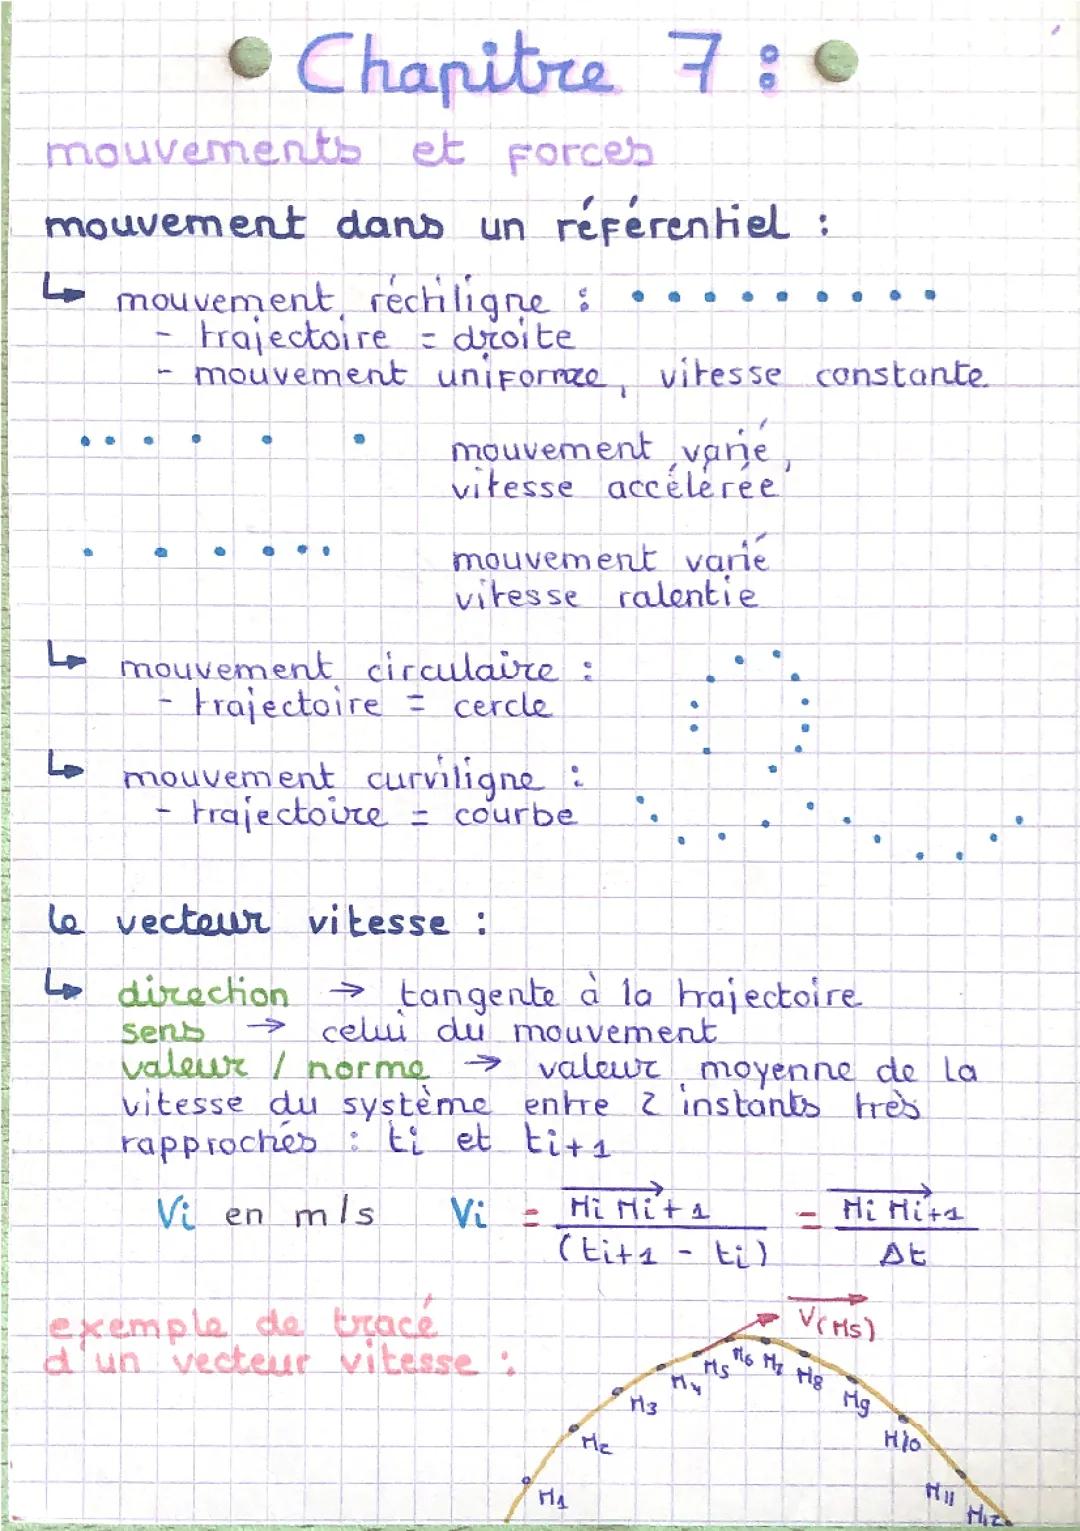 Chapitre 7 :
mouvements et forces
mouvement dans un référentiel :
↳ mouvement réctiligne :
- trajectoire = droite
- mouvement uniforme, vitesse constante
mouvement varié,
vitesse accélérée
mouvement varié
vitesse ralentie
↳ mouvement circulaire :
- trajectoire = cercle
↳ mouvement curviligne :
- trajectoire = courbe
le vecteur vitesse :
↳ direction → tangente à la trajectoire
sens → celui du mouvement
valeur / norme → valeur moyenne de la
vitesse du système entre 2 instants très
rapprochés : ti et ti+1
Vi en m/s Vi = Mi Mi+1 / (ti+1 - ti) = Mi Mi+1 / Δt
exemple de tracé
d'un vecteur vitesse :
V(M5)
M1
M2
M3
M4
M5
M6
M7
M8
M9
M10
M11
M12